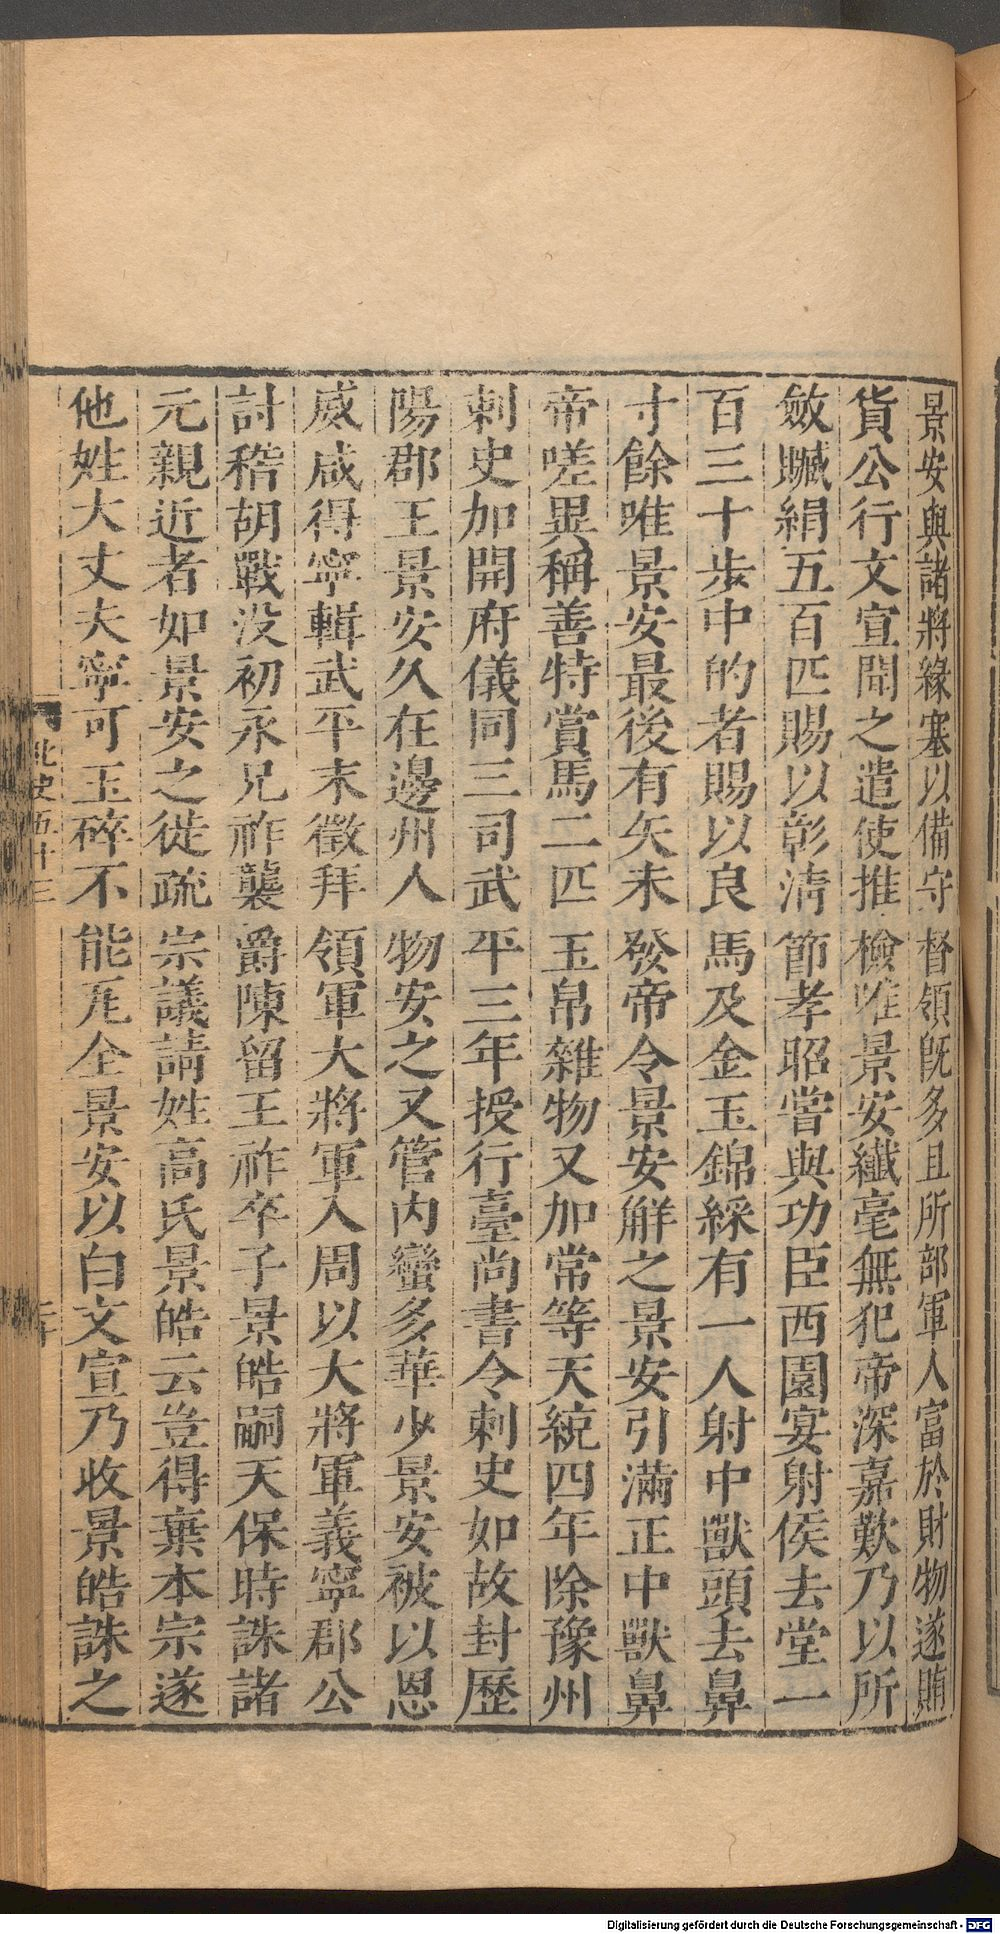 景安與諸將緣塞以備守督領旣多且所部軍人富於財物遂賄
貨公行文宣聞之遣使推檢唯景安纖毫無犯帝深嘉歎乃以所
斂贓絹五百匹賜以彰淸節孝昭嘗與功臣西園宴射侯去堂一
百三十步中的者賜以良馬及金玉錦綵有一人射中獸頭去鼻
寸餘唯景安最後有矢未發帝令景安解之景安引滿正中獸鼻
帝嗟異稱善特賞馬二匹玉帛雜物又加常等天統四年除豫州
刺史加開府儀同三司武平三年授行臺尚書令刺史如故封歷
陽郡王景安久在邊州人物安之又管内蠻多華少景安被以恩
威咸得寧輯武平末徵拜領軍大將軍入周以大將軍義寧郡公
討稽胡戰没初永兄祚襲爵陳留王祚卒子景皓嗣天保時誅諸
元親近者如景安之徒疏宗議請姓高氏景皓云豈得棄本宗遂
他姓大丈夫寧可玉碎不能瓦全景安以白文宣乃收景皓誅之
北史五十三
二十
Digitalisierung gefördert durch die Deutsche Forschungsgemeinschaft - DFG